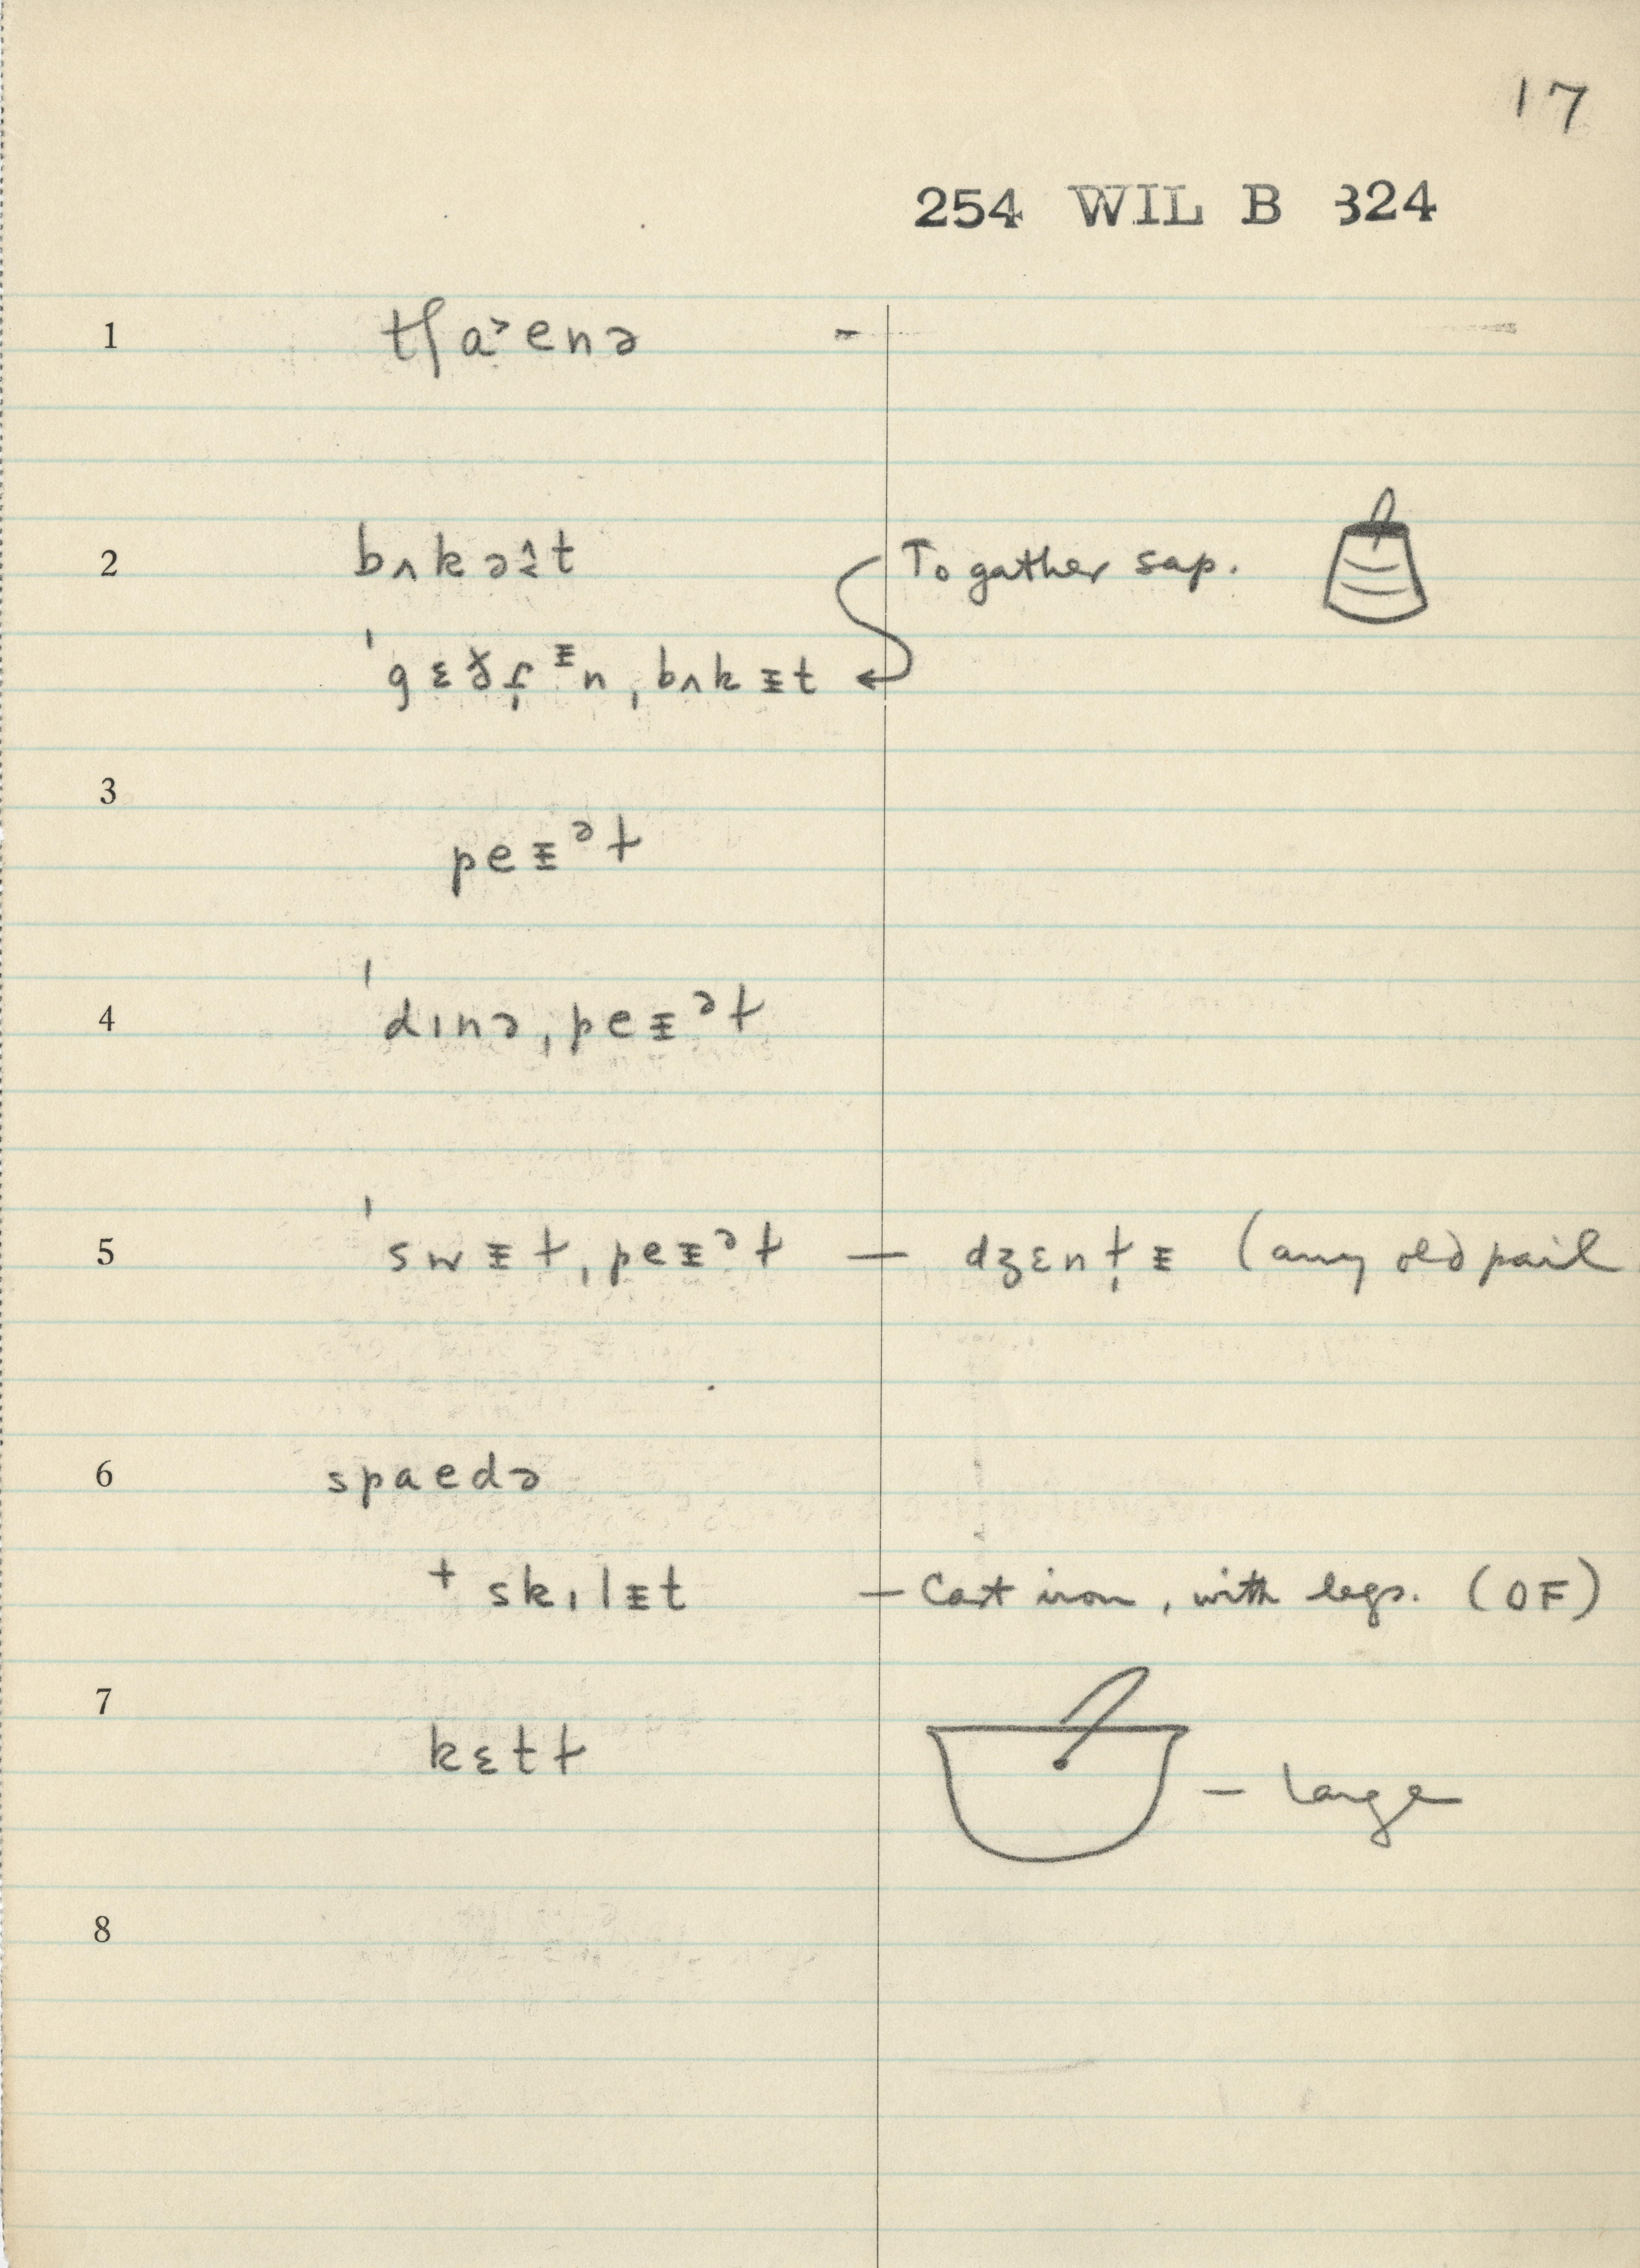 17
254 WIL B 324
1 tʃa˃enə -
2 bʌkə⩯t To gather sap.
ˈgɛðɚᵻn ˌbʌkᵻt
3
peᵻᵊɫ
4 ˈdɪnə ˌpeᵻᵊɫ
5 ˈswᵻɫ ˌpeᵻᵊɫ — dʒɛnɫ̩ᵻ (any old pail
6 spaedə
+ skɪlᵻt — Cast iron, with legs. (OF)
7
kɛtɫ — large
8